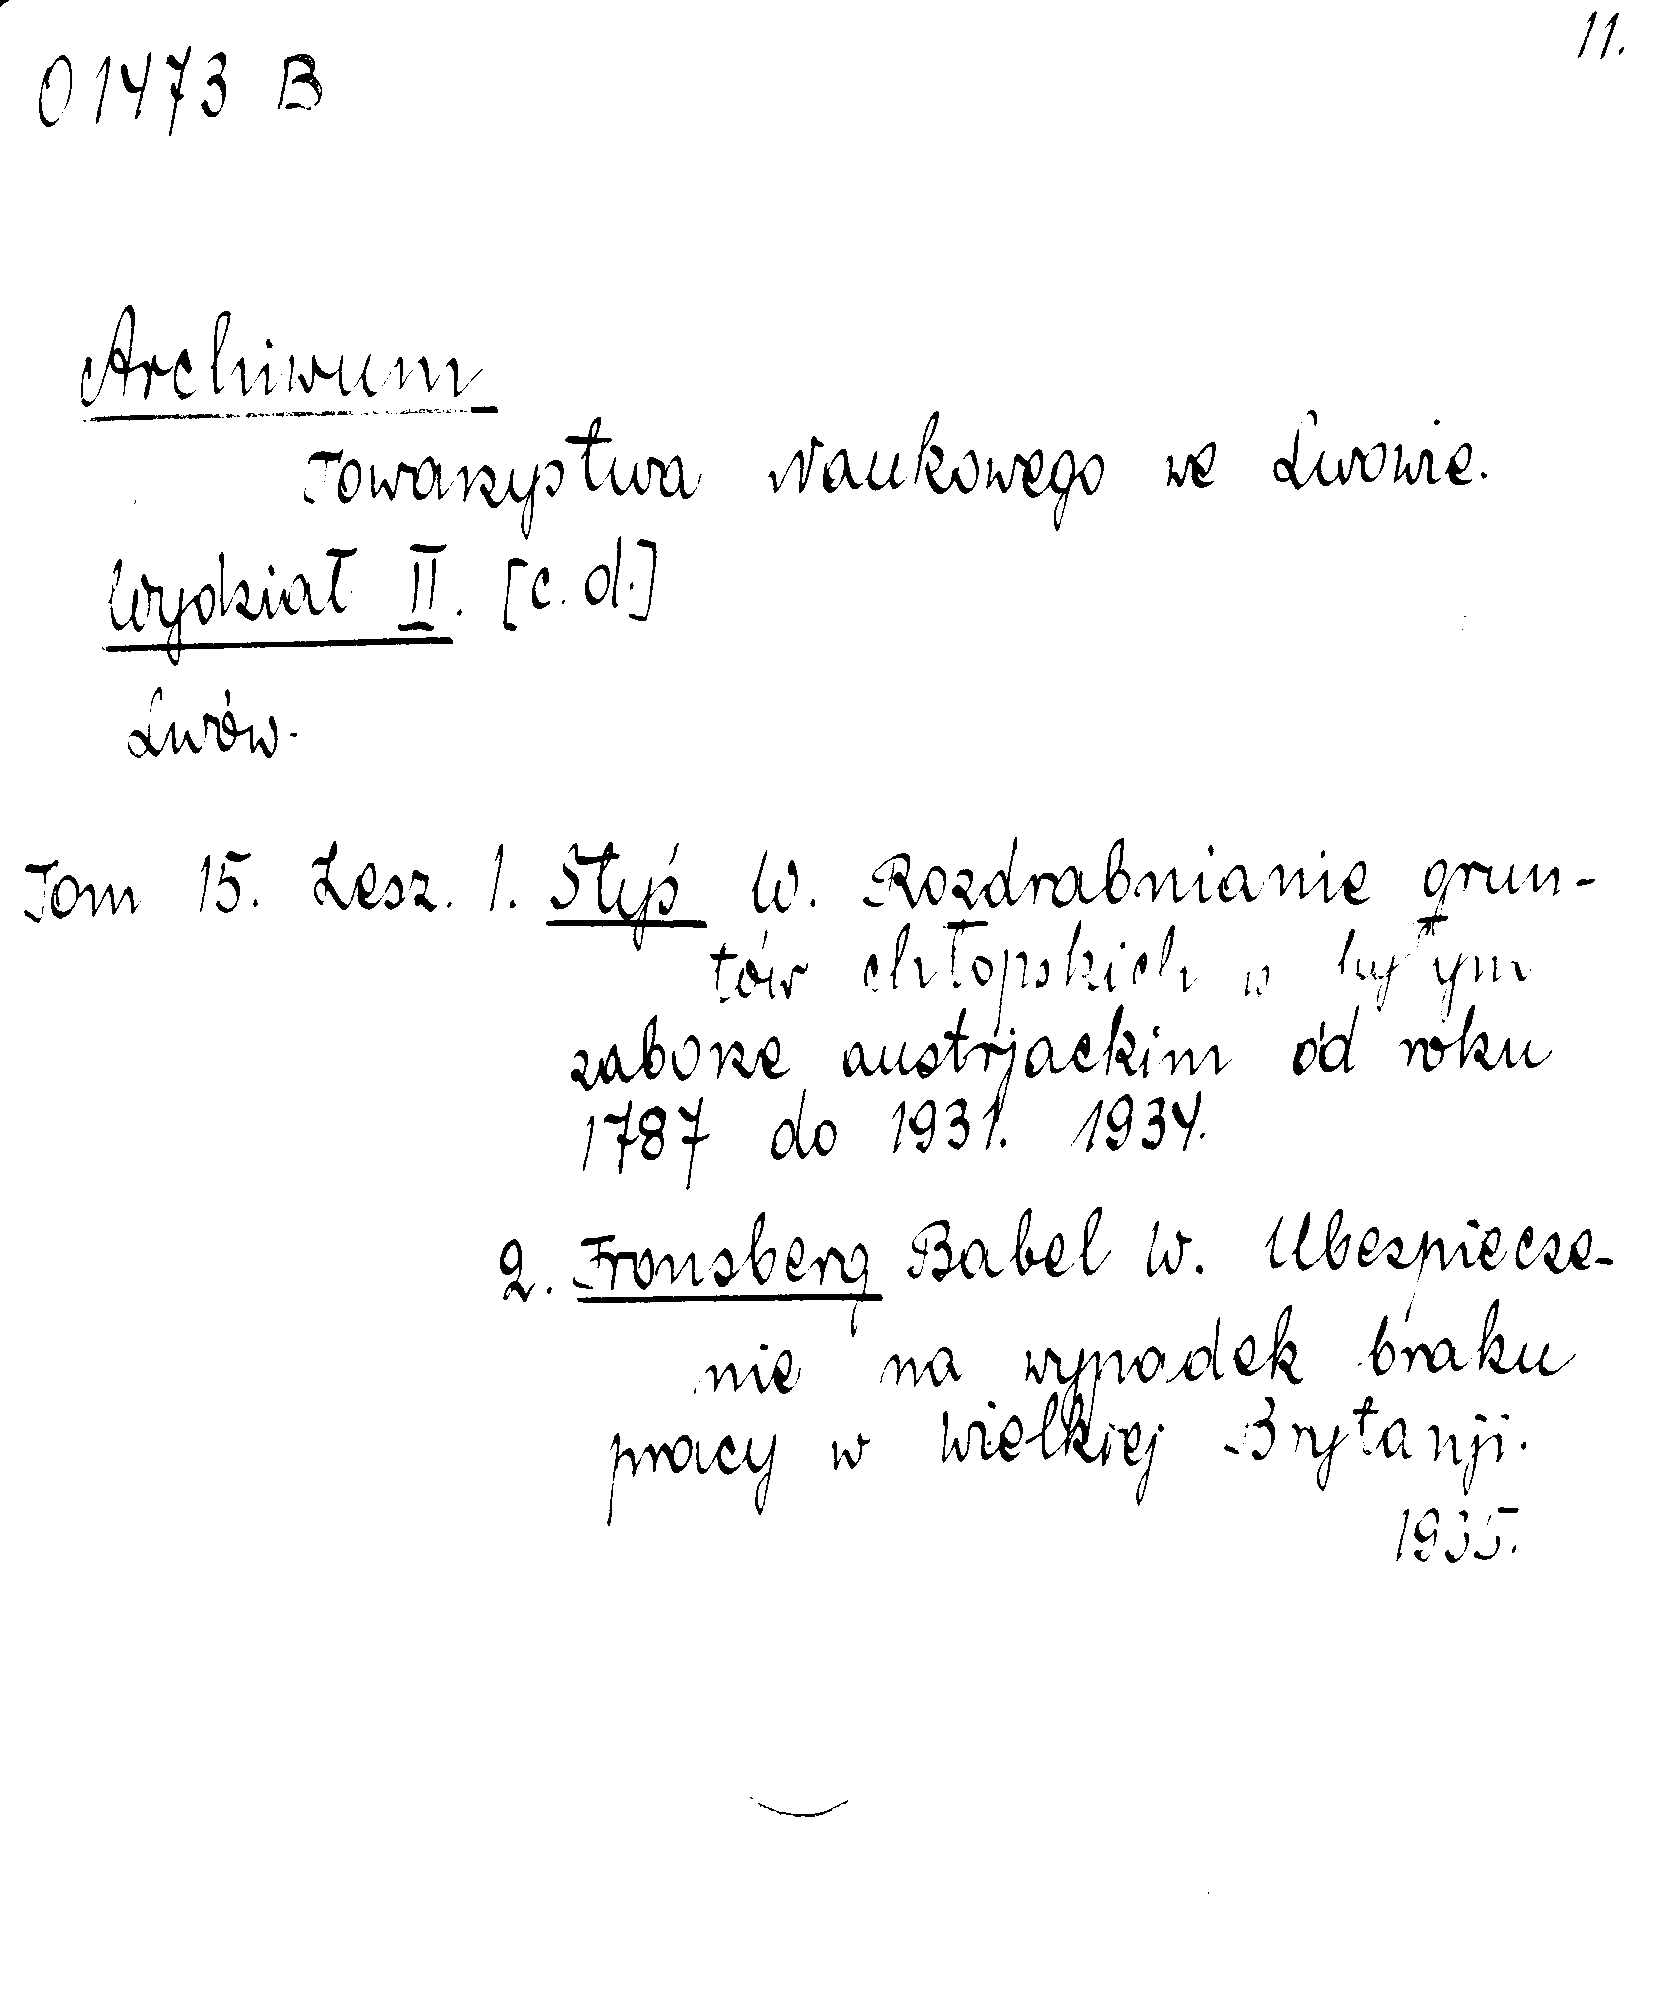 11.
01473 B
Archiwum
Towarzystwa Naukowego we Lwowie.
Wydział II. [c.d.]
Lwów.
Tom 15. Zesz. 1. Styś W. Rozdrabnianie grun-
tów chłopskich w byłym
zaborze austrjackim od roku
1787 do 1931. 1934.
2. Fronsberg Babel W. Ubezpiecze-
nie na wypadek braku
pracy w Wielkiej Brytanji.
1935.